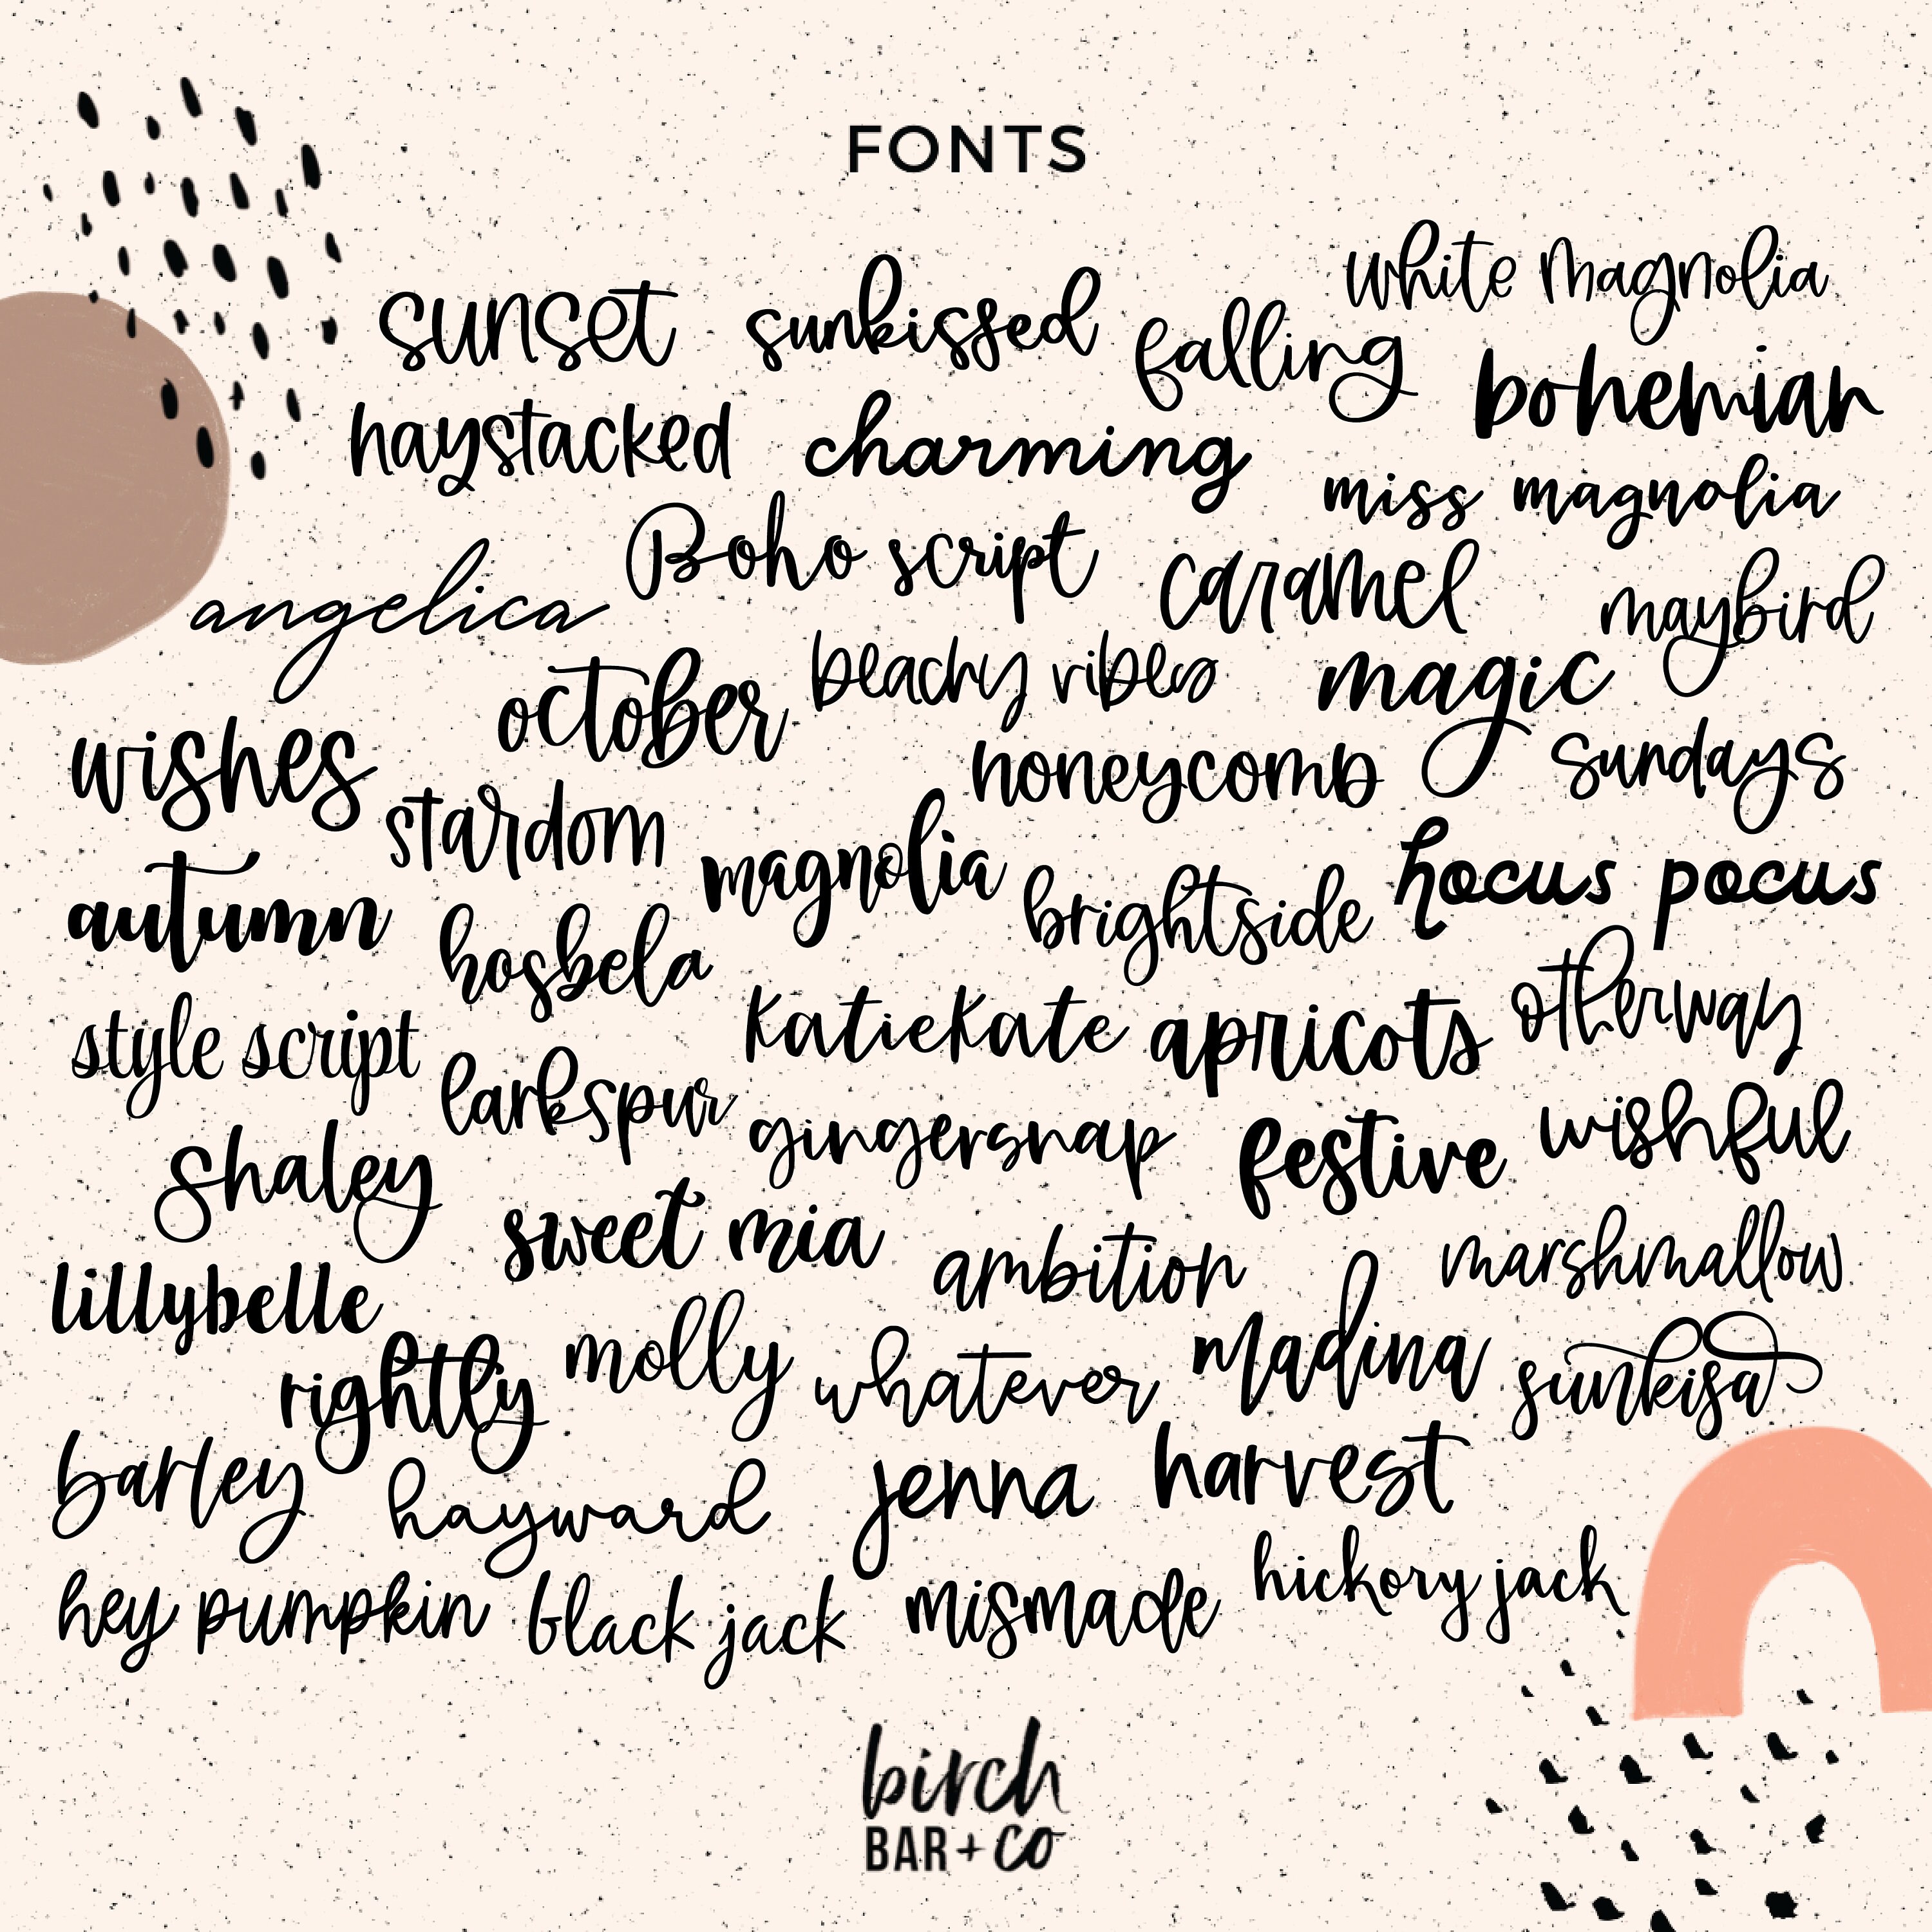 FONTS
white magnolia
sunset sunkissed falling
bohemian
haystacked charming
miss magnolia
Boho script caramel maybird
angelica
october beachy vibes magic
wishes honeycomb sundays
stardom
magnolia brightside hocus pocus
autumn hosbela
katiekate apricots otherway
style script larkspur
gingersnap festive wishful
Shaley
sweet mia ambition marshmallow
lillybelle
rightly molly whatever madina sunkisa
barley hayward jenna harvest
hey pumpkin black jack mismade hickory jack
birch
BAR + CO